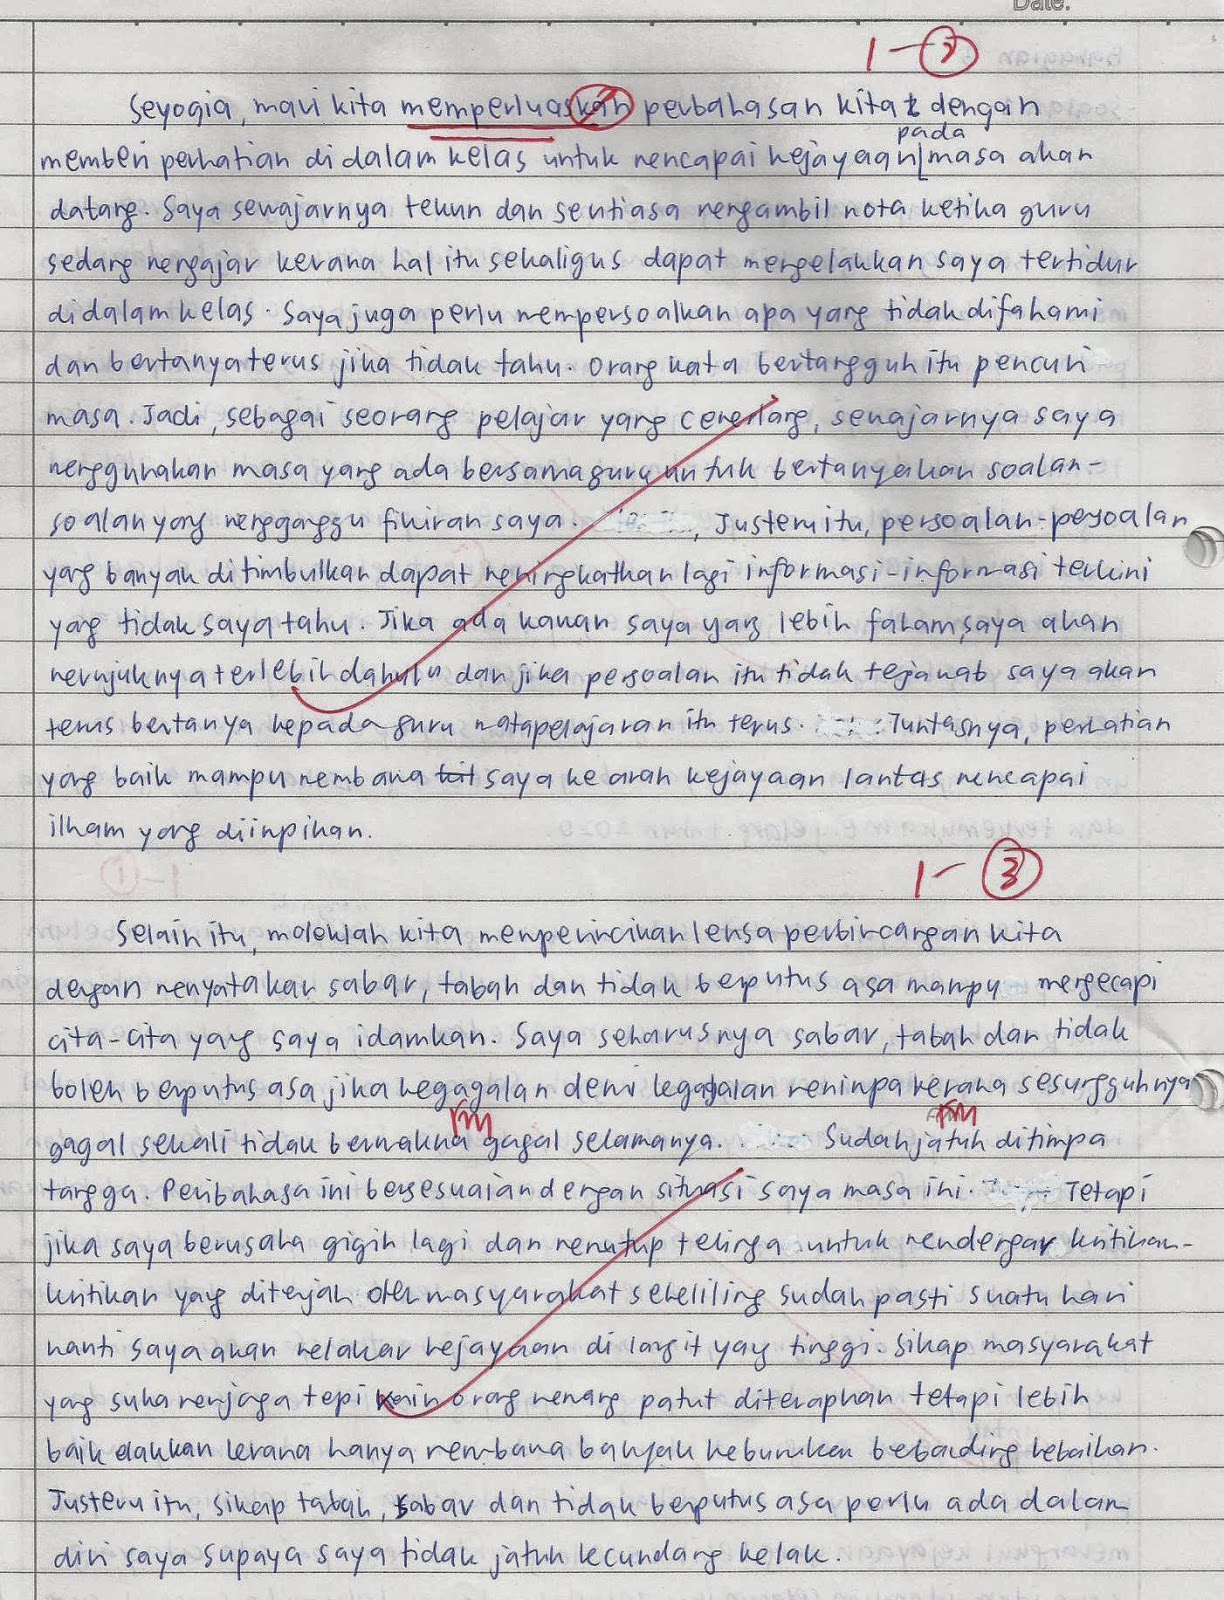 Date:
1 – 3
Seyogia, mari kita memperluaskan perbahasan kita dengan
pada
memberi perhatian di dalam kelas untuk mencapai kejayaan masa akan
datang. Saya sewajarnya tekun dan sentiasa mengambil nota ketika guru
sedang mengajar kerana hal itu sekaligus dapat mengelakkan saya tertidur
didalam kelas. Saya juga perlu mempersoalkan apa yang tidak difahami
dan bertanya terus jika tidak tahu. Orang kata bertangguh itu pencuri
masa. Jadi, sebagai seorang pelajar yang cemerlang, sewajarnya saya
menggunakan masa yang ada bersama guru untuk bertanyakan soalan-
soalan yang mengganggu fikiran saya. , Justeru itu, persoalan-persoalan
yang banyak ditimbulkan dapat meningkatkan lagi informasi-informasi terkini
yang tidak saya tahu. Jika ada kawan saya yang lebih faham, saya akan
merujuknya terlebih dahulu dan jika persoalan itu tidak terjawab saya akan
terus bertanya kepada guru matapelajaran itu terus. Tuntasnya, perhatian
yang baik mampu membawa saya ke arah kejayaan lantas mencapai
ilham yang diimpikan.
1 – 3
Selain itu, moleklah kita memperincikan lensa perbincangan kita
dengan menyatakan sabar, tabah dan tidak berputus asa mampu mengecapi
cita-cita yang saya idamkan. Saya seharusnya sabar, tabah dan tidak
boleh berputus asa jika kegagalan demi kegagalan menimpa kerana sesungguhnya
gagal sekali tidak bermakna gagal selamanya. Sudah jatuh ditimpa
tangga. Peribahasa ini bersesuaian dengan situasi saya masa ini. Tetapi
jika saya berusaha gigih lagi dan menutup telinga untuk mendengar kritikan-
kritikan yang diterjah oleh masyarakat sekeliling sudah pasti suatu hari
nanti saya akan melakar kejayaan di langit yang tinggi. Sikap masyarakat
yang suka menjaga tepi kain orang memang patut diterapkan tetapi lebih
baik elakkan kerana hanya membawa banyak keburukan berbanding kebaikan.
Justeru itu, sikap tabah, sabar dan tidak berputus asa perlu ada dalam
diri saya supaya saya tidak jatuh kecundang kelak.